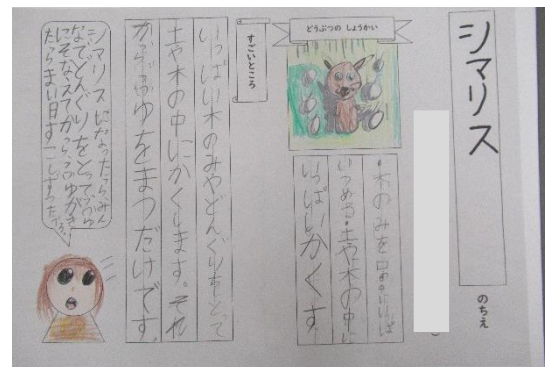 シマリス
のちえ
どうぶつの しょうかい
・木のみを口の中にいっぱい
いつめる・土や木の中に
いっぱいかくす
すごいところ
いっぱい木のみやどんぐりをとって
土や木の中にかくします。それ
からふゆをまつだけです。
シマリスになったらみん
なでどんぐりをとって
にそなえてから、ふゆがき
たらまい日すこしずつたべる。